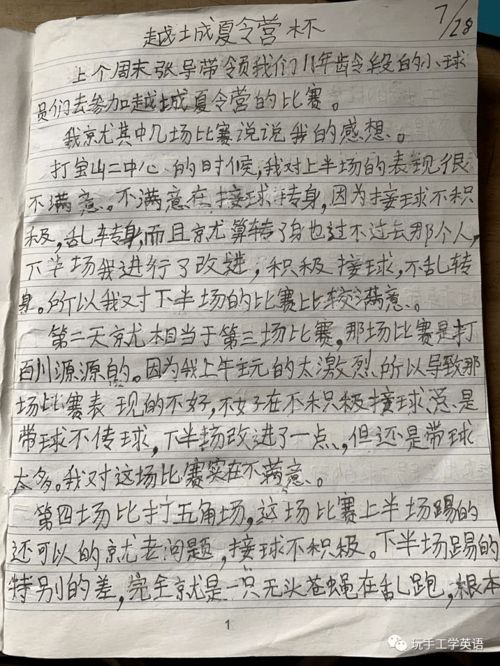 越士成夏令营杯
7/28
上个周末张导带领我们11年龄段的小球
员们去参加越城夏令营的比赛。
我京尤其中几场比赛说说我的感想。
打宝山二中心的时候,我对上半场的表现很
不满意。不满意在接球转身,因为接球不积
极,乱转身,而且京尤算转了身也过不过去那个人,
下半场我进行了改进,积极接球,不乱转
身。所以我对下半场的比赛比较满意。
第二天京尤相当于第三场比赛,那场比赛是打
百川源源的。因为我上午玩的太激烈所以导致那
场比赛表现的不好,不好在不积极接球总是
带球不传球,下半场改进了一点,但还是带球
太多。我对这场比赛实在不满意。
第四场比打五角场,这场比赛上半场踢的
还可以的京尤老问题,接球不积极。下半场踢的
特别的差,完全京尤是一只无头苍蝇在乱跑,根本
1
玩手工学英语